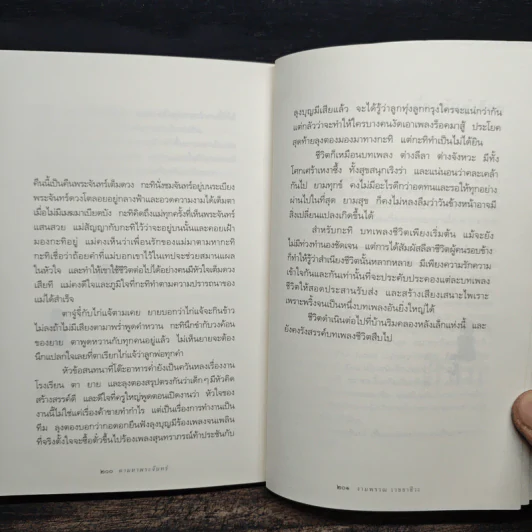 คืนนี้เป็นคืนพระจันทร์เต็มดวง กะทินั่งชมจันทร์อยู่บนระเบียง
พระจันทร์ดวงโตลอยอยู่กลางฟ้าและอวดความงามได้เต็มตา
เมื่อไม่มีเมฆมาเบียดบัง กะทิคิดถึงแม่ทุกครั้งที่เห็นพระจันทร์
แสนสวย แม่สัญญากับกะทิไว้ว่าจะอยู่บนนั้นและคอยเฝ้า
มองกะทิอยู่ แม่คงเห็นว่าเพื่อนรักของแม่มาตามหากะทิ
กะทิเชื่อว่าถ้อยคำที่แม่บอกเขาไว้ในเทปจะช่วยสมานแผล
ในหัวใจ และทำให้เขาใช้ชีวิตต่อไปได้อย่างคนมีหัวใจเต็มดวง
เสียที แม่คงดีใจและภูมิใจที่กะทิทำตามความปรารถนาของ
แม่ได้สำเร็จ
ตาจู้จี้กับไก่แจ้ตามเคย ยายบอกว่าไก่แจ้จะกินข้าว
ไม่ลงถ้าไม่มีเสียงตามาพร่ำพูดคำหวาน กะทินึกขำกับวงค้อน
ของยาย ตาพูดหวานกับทุกคนอยู่แล้ว ไม่เห็นยายจะต้อง
นึกแปลกใจเลยที่ตาเรียกไก่แจ้ว่าลูกพ่อทุกคำ
หัวข้อสนทนาที่โต๊ะอาหารค่ำยังเป็นควันหลงเรื่องงาน
โรงเรียน ตา ยาย และลุงตองสรุปตรงกันว่าเด็กๆ มีหัวคิด
สร้างสรรค์ดี และดีใจที่ครูใหญ่พูดตอนเปิดงานว่า หัวใจของ
งานนี้ไม่ใช่แค่เรื่องค้าขายทำกำไร แต่เป็นเรื่องการทำงานเป็น
ทีม ลุงตองบอกว่ากอดอกยืนฟังลุงบุญมีร้องเพลงจนเพลิน
ที่จริงตั้งใจจะซื้อตั๋วขึ้นไปร้องเพลงสุนทราภรณ์ท้าประชันกับ
๒๐๐ ตามหาพระจันทร์
ลุงบุญมีเสียแล้ว จะได้รู้ว่าลูกทุ่งลูกกรุงใครจะแน่กว่ากัน
แต่กลัวว่าจะทำให้ใครบางคนงัดเอาเพลงร็อคมาสู้ ประโยค
สุดท้ายลุงตองมองมาทางกะทิ แต่กะทิทำเป็นไม่ได้ยิน
ชีวิตก็เหมือนบทเพลง ต่างลีลา ต่างจังหวะ มีทั้ง
โศกเศร้าเหงาซึ้ง ทั้งสุขสนุกเริงร่า และแน่นอนว่าคละเคล้า
กันไป ยามทุกข์ คงไม่มีอะไรดีกว่าอดทนและรอให้ทุกอย่าง
ผ่านไปในที่สุด ยามสุข ก็คงไม่หลงลืมว่าวันข้างหน้าอาจมี
สิ่งเปลี่ยนแปลงเกิดขึ้นได้
สำหรับกะทิ บทเพลงชีวิตเพียงเริ่มต้น แม้จะยัง
ไม่มีท่วงทำนองชัดเจน แต่การได้สัมผัสลีลาชีวิตผู้คนรอบข้าง
ก็ทำให้รู้ว่าสำเนียงชีวิตนั้นหลากหลาย มีเพียงความรักความ
เข้าใจกันและกันเท่านั้นที่จะประคับประคองแต่ละบทเพลง
ชีวิตให้สอดประสานรับส่ง และสร้างเสียงเสนาะไพเราะ
เพราะพริ้งจนเป็นหนึ่งบทเพลงอันยิ่งใหญ่ได้
ชีวิตดำเนินต่อไปที่บ้านริมคลองหลังเล็กแห่งนี้ และ
ยังคงรังสรรค์บทเพลงชีวิตสืบไป
๒๐๑ งามพรรณ เวชชาชีวะ